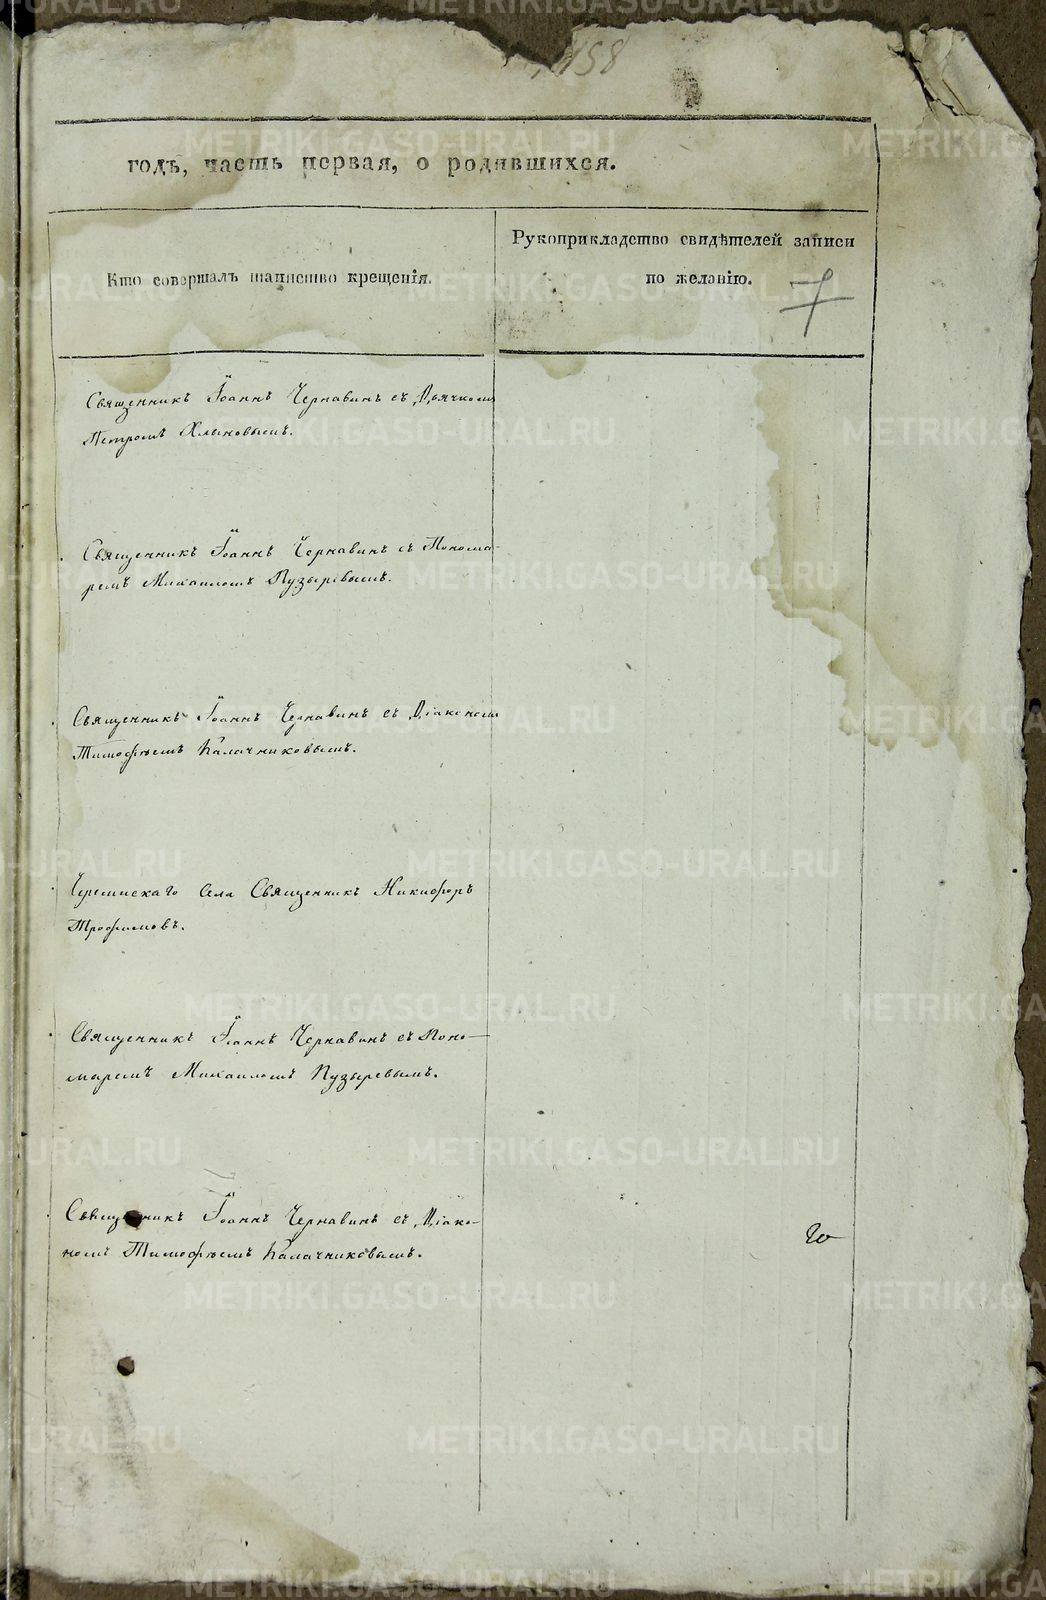 458
годъ, часть первая, о родившихся.
Кто совершалъ таинство крещенія.
Рукоприкладство свидѣтелей записи
по желанію.
7
Священникъ Іоаннъ Чернавинъ съ Дьячкомъ
Петромъ Хлыновымъ.
Священникъ Іоаннъ Чернавинъ съ Понома-
ремъ Михаиломъ Пузыревымъ.
Священникъ Іоаннъ Чернавинъ съ Діакономъ
Тимофѣемъ Калачниковымъ.
Черемискаго Села Священникъ Никифоръ
Трофимовъ.
Священникъ Іоаннъ Чернавинъ съ Поно-
маремъ Михаиломъ Пузыревымъ.
Священникъ Іоаннъ Чернавинъ съ Діако-
номъ Тимофѣемъ Калачниковымъ.
METRIKI.GASO-URAL.RU